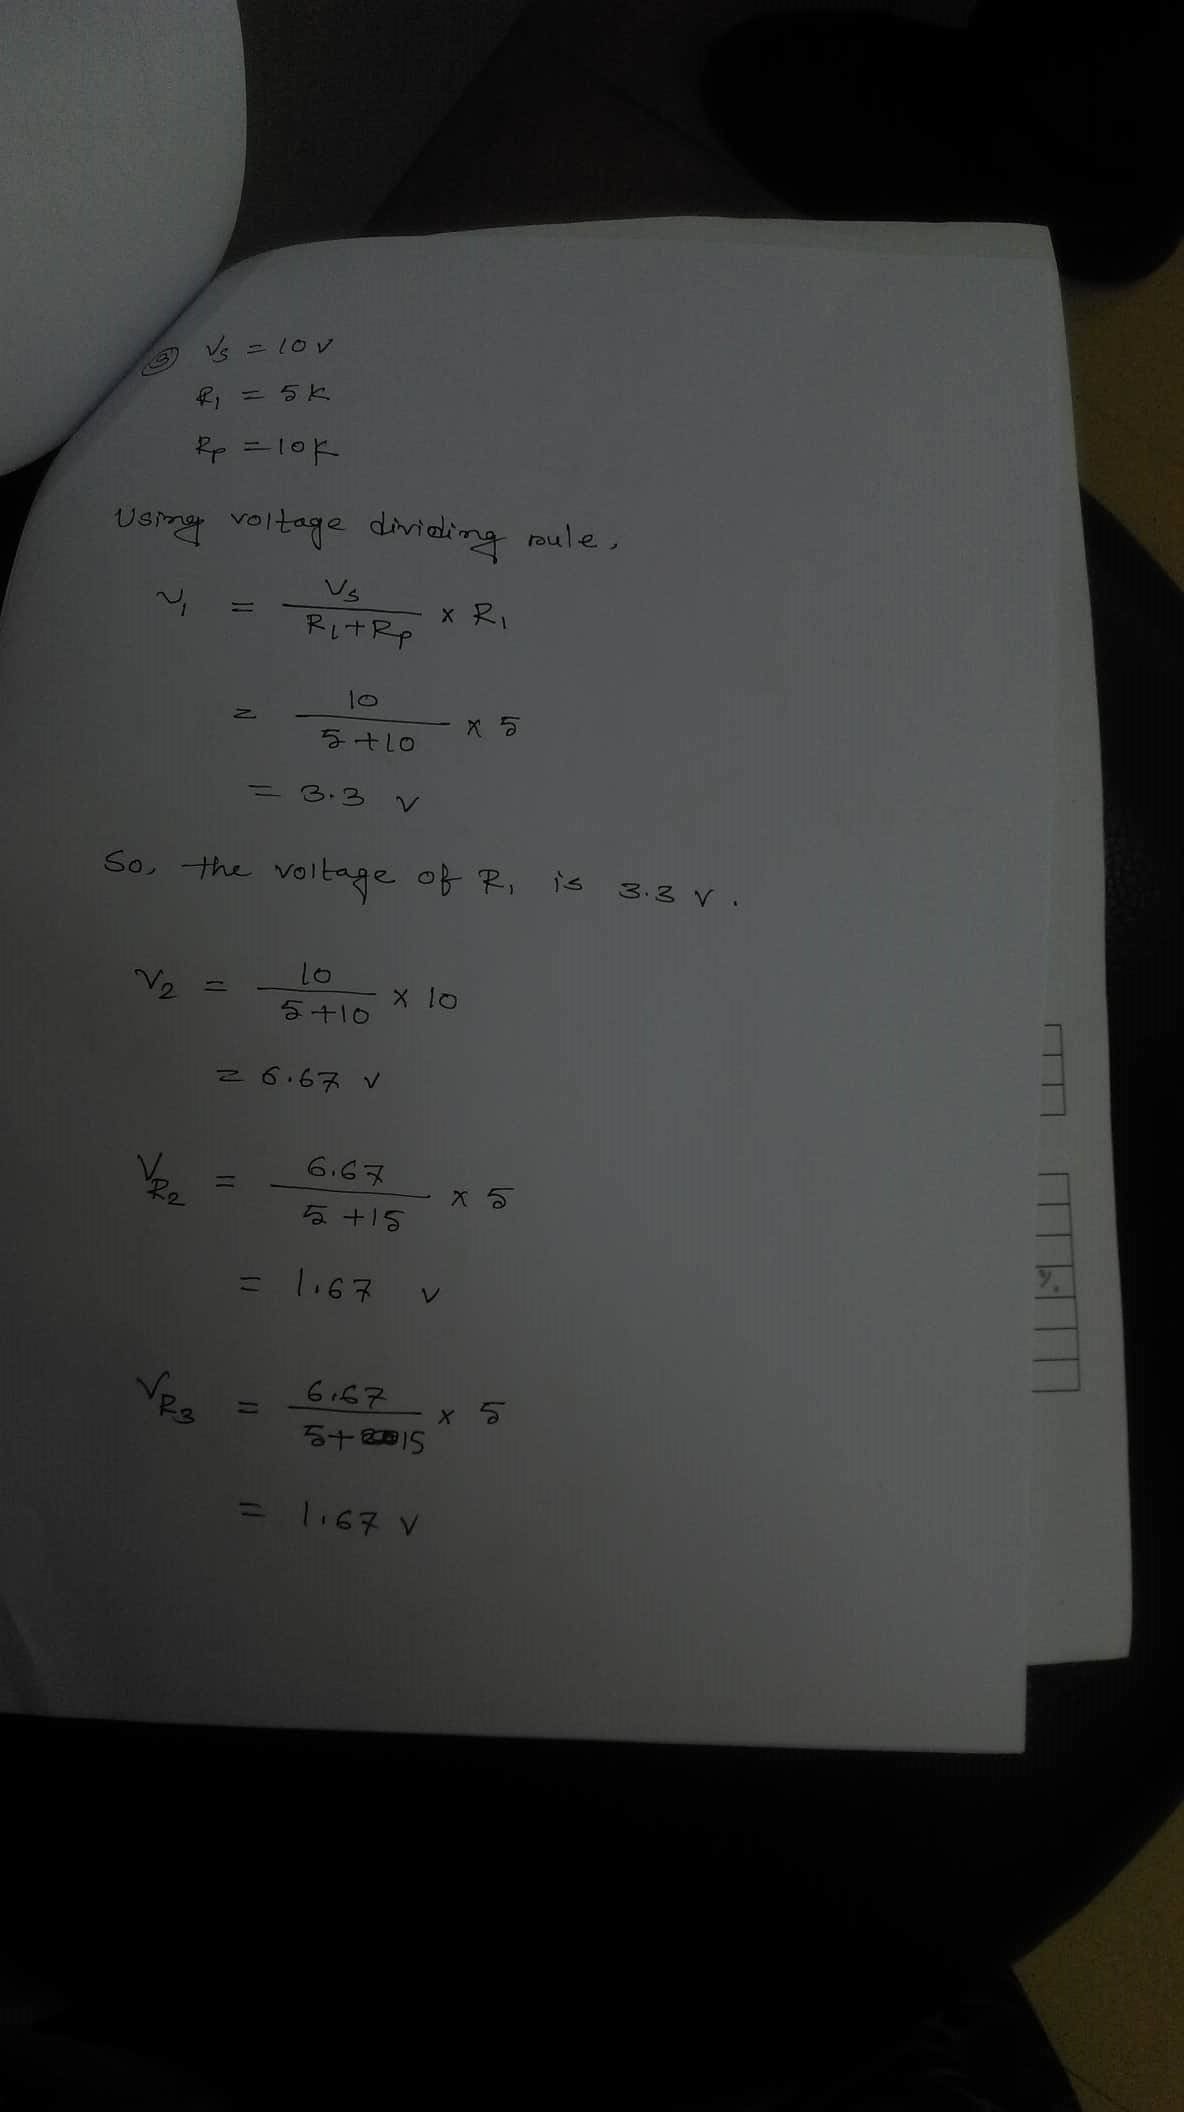 ③ Vs = 10 V
R1 = 5 K
Rp = 10 K
Using voltage dividing rule,
V1 = Vs / (R1 + Rp) × R1
= 10 / (5 + 10) × 5
= 3.3 V
So, the voltage of R1 is 3.3 V.
V2 = 10 / (5 + 10) × 10
= 6.67 V
VR2 = 6.67 / (5 + 15) × 5
= 1.67 V
VR3 = 6.67 / (5 + 15) × 5
= 1.67 V